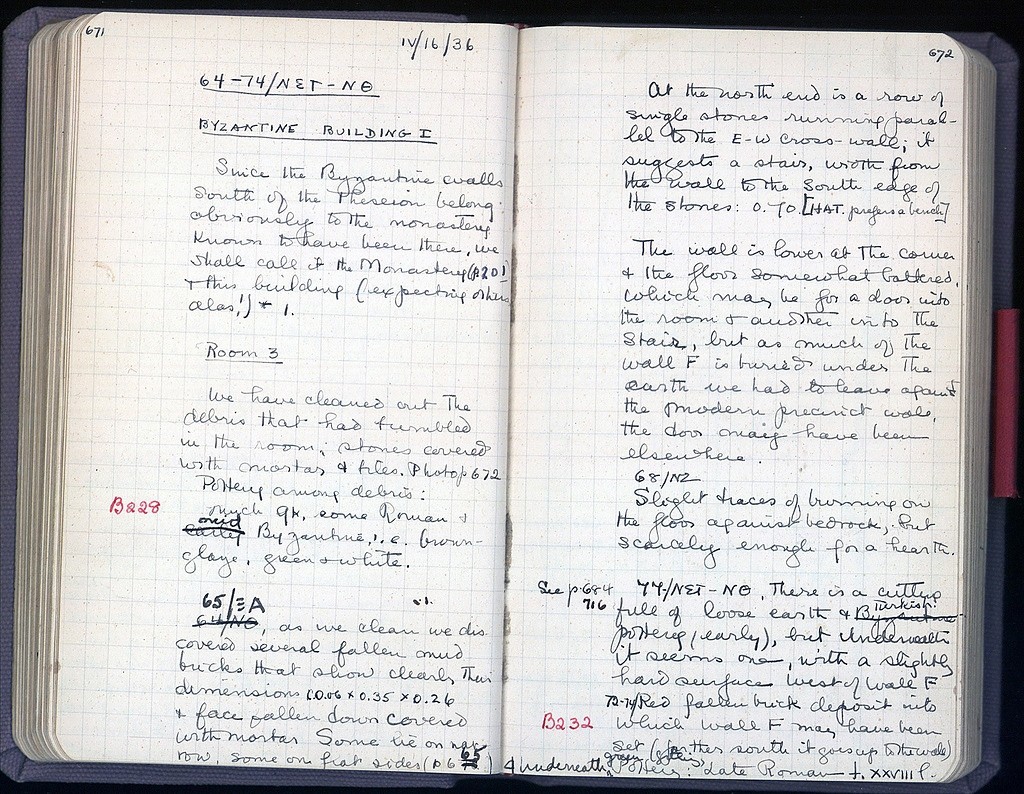 671
IV/16/36
64-74/ΝΣΤ-ΝΘ
BYZANTINE BUILDING I
Since the Byzantine walls
South of the Theseion belong
obviously to the monastery
known to have been there, we
shall call it the Monastery (p 201)
+ this building (expecting others
alas!) * 1.
Room 3
We have cleaned out the
debris that had tumbled
in the room; stones covered
with mortar & tiles. Photo p 672
Pottery among debris:
B228
much Gk, some Roman +
mid
early Byzantine, i.e. brown-
glaze, green & white.
65/ΞA
64/ΝΘ, as we clean we dis
covered several fallen mud
bricks that show clearly their
dimensions (0.06 x 0.35 x 0.26
& face fallen down covered
with mortar. Some lie on
row, some on flat sides (p 665)
672
At the north end is a row of
single stones running paral-
lel to the E-W cross-wall; it
suggests a stair, width from
the wall to the south edge of
the stones: 0.70. [HAT. prefers a bench]
The wall is lower at the corner
& the floor somewhat battered,
which may be for a door into
the room & another into the
stair, but as much of the
wall F is buried under the
earth we had to leave against
the modern precinct wall,
the door may have been
elsewhere.
68/ΝΖ
Slight traces of burning on
the floor against bedrock, but
scarcely enough for a hearth.
See p. 684
716
77/ΝΣΤ-ΝΘ, There is a cutting
Turkish
full of loose earth & Byzantine
pottery (early), but underneath
it seems one, with a slightly
hard surface west of wall F
72-74/ Red fallen brick deposit into
B232
which wall F may have been
set (further south it goes up to the wall)
& underneath, Pottery: Late Roman f. XXVIII f.